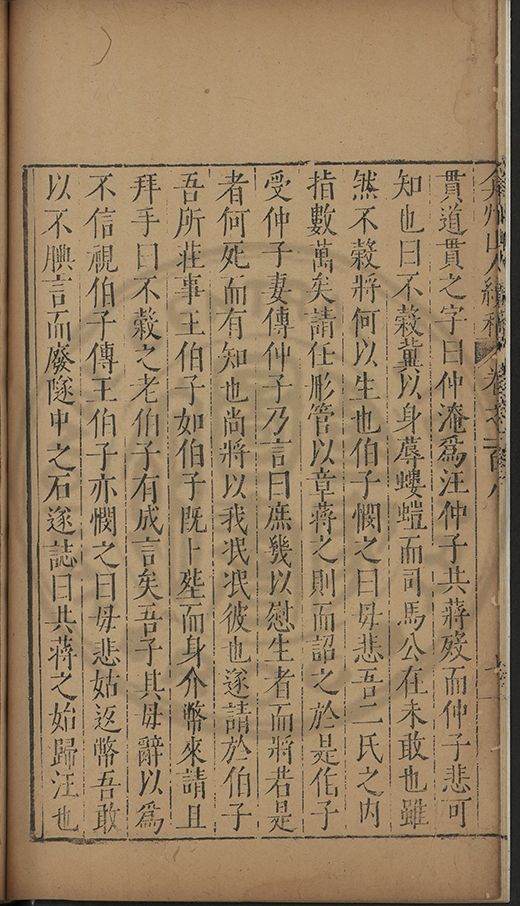 弇州山人續稿 卷之一百八
貫道貫之字曰仲淹爲汪仲子共蔣歿而仲子悲可
知也曰不榖冀以身蓐螻螘而司馬公在未敢也雖
然不榖將何以生也伯子憫之曰毋悲吾二氏之内
指數萬矣請任彤管以章蔣之則而詔之於是伯子
受仲子妻傳仲子乃言曰庶幾以慰生者而將若是
者何死而有知也尚將以我泯泯彼也遂請於伯子
吾所莊事王伯子如伯子既卜塟而身介幣來請且
拜手曰不榖之老伯子有成言矣吾子其毋辭以爲
不信視伯子傳王伯子亦憫之曰毋悲姑返幣吾敢
以不腆言而廢隧中之石遂誌曰共蔣之始歸汪也